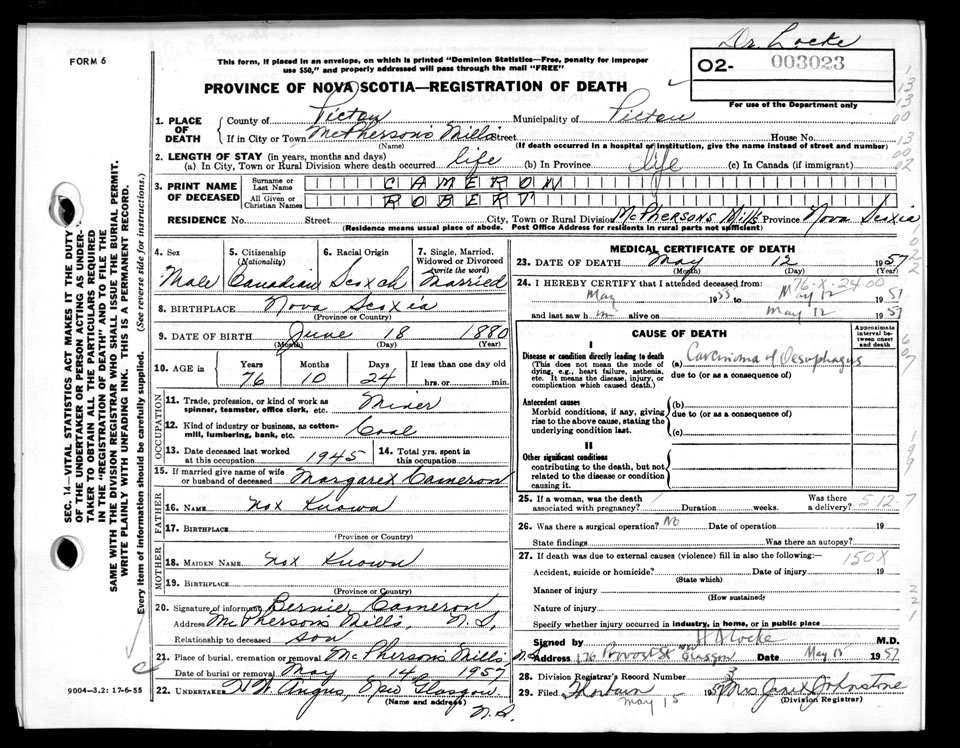 Dr. Locke
FORM 6
This form, if placed in an envelope, on which is printed "Dominion Statistics—Free, penalty for improper use $50," and properly addressed will pass through the mail "FREE"
O2- 003023
For use of the Department only
PROVINCE OF NOVA SCOTIA—REGISTRATION OF DEATH
1. PLACE OF DEATH County of Pictou Municipality of Pictou
If in City or Town McPherson's Mills Street House No.
(Name) (If death occurred in a hospital or institution, give the name instead of street and number)
2. LENGTH OF STAY (in years, months and days)
(a) In City, Town or Rural Division where death occurred life (b) In Province life (c) In Canada (if immigrant)
3. PRINT NAME OF DECEASED Surname or Last Name CAMERON
All Given or Christian Names ROBERT
RESIDENCE No. Street City, Town or Rural Division McPhersons Mills Province Nova Scotia
(Residence means usual place of abode. Post Office Address for residents in rural parts not sufficient)
4. Sex Male
5. Citizenship (Nationality) Canadian
6. Racial Origin Scotch
7. Single, Married, Widowed or Divorced (write the word) Married
8. BIRTHPLACE Nova Scotia
(Province or Country)
9. DATE OF BIRTH June 18 1880
(Month) (Day) (Year)
10. AGE in Years 76 Months 10 Days 24 If less than one day old hrs. or min.
OCCUPATION
11. Trade, profession, or kind of work as spinner, teamster, office clerk, etc. Miner
12. Kind of industry or business, as cotton-mill, lumbering, bank, etc. Coal
13. Date deceased last worked at this occupation 1945 14. Total yrs. spent in this occupation
15. If married give name of wife or husband of deceased Margaret Cameron
FATHER
16. NAME Not Known
17. BIRTHPLACE
(Province or Country)
MOTHER
18. MAIDEN NAME Not Known
19. BIRTHPLACE
(Province or Country)
20. Signature of informant Bernie Cameron
Address McPhersons Mills, N.S.
Relationship to deceased son
21. Place of burial, cremation or removal McPherson's Mills
Date of burial or removal May 14 1957
22. UNDERTAKER H. W. Angus, New Glasgow
(Name and address) N.S.
9004—3.2: 17-6-55
MEDICAL CERTIFICATE OF DEATH
23. DATE OF DEATH May 12 1957
(Month) (Day) (Year)
76-X-2400
24. I HEREBY CERTIFY that I attended deceased from:
May 1955 to May 12 1957
and last saw him alive on May 12 1957
CAUSE OF DEATH
Approximate interval between onset and death
I
Disease or condition directly leading to death (a) Carcinoma of Oesophagus
(This does not mean the mode of dying, e.g., heart failure, asthenia, etc. It means the disease, injury, or complication which caused death.)
due to (or as a consequence of)
Antecedent causes (b)
Morbid conditions, if any, giving rise to the above cause, stating the underlying condition last.
due to (or as a consequence of)
(c)
II
Other significant conditions
contributing to the death, but not related to the disease or condition causing it.
25. If a woman, was the death associated with pregnancy? Duration weeks. Was there a delivery?
512-7
26. Was there a surgical operation? No Date of operation 19
State findings Was there an autopsy?
27. If death was due to external causes (violence) fill in also the following:—
150X
Accident, suicide or homicide? Date of injury 19
(State which)
Manner of injury
(How sustained)
Nature of injury
Specify whether injury occurred in industry, in home, or in public place
Signed by H A Locke M.D.
Address 176 Provost St New Glasgow N.S. Date May 15 1957
28. Division Registrar's Record Number 3
29. Filed Thorburn May 15 1957 Mrs Janet Johnstone
(Division Registrar)
SEC. 14—VITAL STATISTICS ACT MAKES IT THE DUTY OF THE UNDERTAKER OR PERSON ACTING AS UNDERTAKER TO OBTAIN ALL THE PARTICULARS REQUIRED IN THE "REGISTRATION OF DEATH" AND TO FILE THE SAME WITH THE DIVISION REGISTRAR WHO SHALL ISSUE THE BURIAL PERMIT.
WRITE PLAINLY WITH UNFADING INK. THIS IS A PERMANENT RECORD.
Every item of information should be carefully supplied. (See reverse side for instructions.)